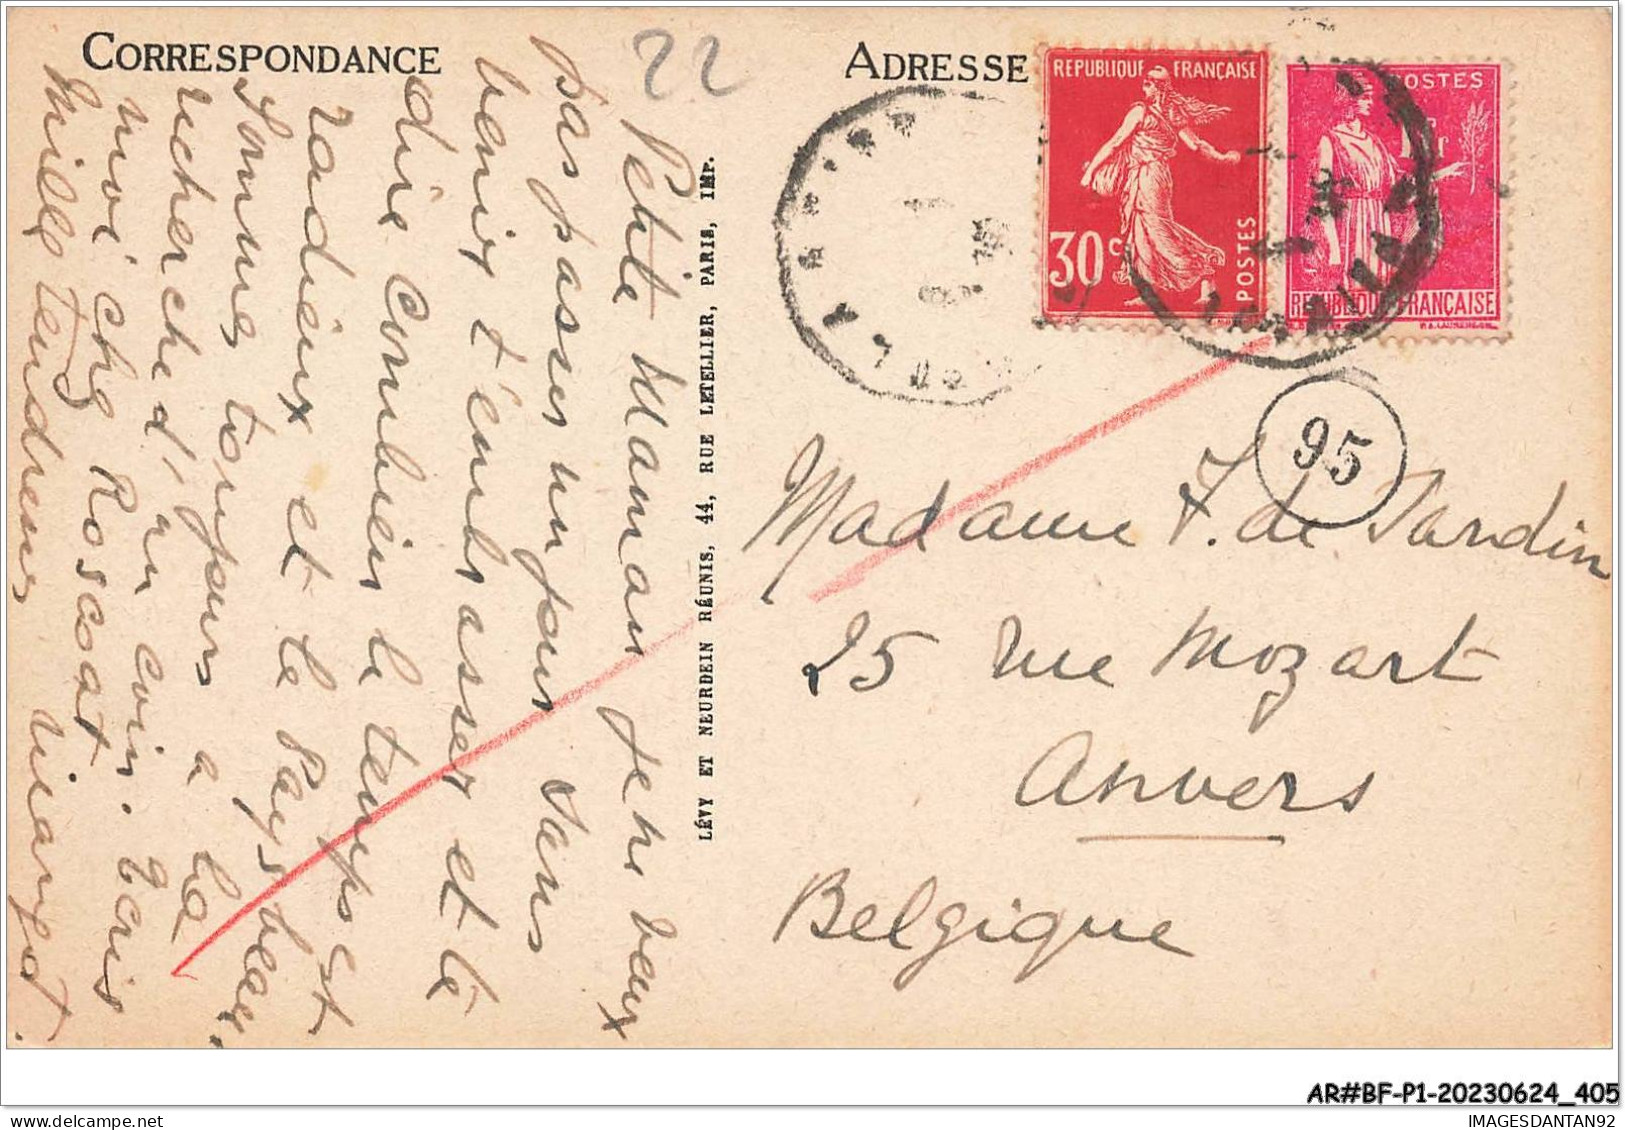 CORRESPONDANCE
22
Petite Maman je ne veux
pas passer un jour sans
venir t'embrasser et te
dire combien le temps est
radieux et le Pays beau,
Sommes toujours a la
recherche d'un coin. Ecris
moi chez Roscoat
Mille tendresses
LÉVY ET NEURDEIN RÉUNIS, 44, RUE LETELLIER, PARIS, IMP.
ADRESSE
REPUBLIQUE FRANÇAISE
30c
POSTES
POSTES
REPUBLIQUE FRANÇAISE
95
Madame J. de Jardin
25 rue Mozart
Anvers
Belgique
AR#BF-P1-20230624_405
IMAGESDANTAN92